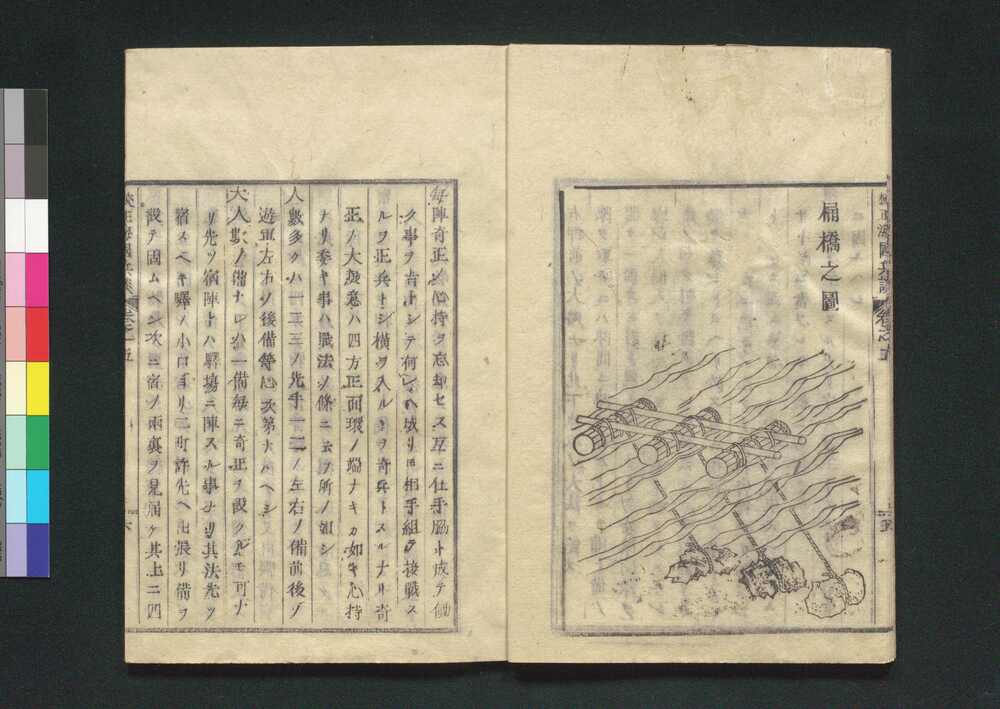 扁橋之圖
毎陣奇正ノ心持ヲ忘却セス互ニ仕手脇ト成テ働
ク事ヲ吉トシテ何レヘ成リ𪜈相手組テ接戰ス
ルヲ正兵トシ横ヲ入ルヽヲ奇兵トスルナリ奇
正ノ大意ハ四方正面環ノ端ナキカ如キ心持
ナリ委キ事ハ戰法ノ條ニ云フ所ノ如シ
人數多クハ一二三ノ先手十二ノ左右ノ備前後ノ
遊軍左右ノ後備等心次第ナルヘシ
大人數ノ備ナレハ一備毎ニ奇正ヲ設クルモ可ナ
リ先ツ宿陣トハ驛場ニ陣スル事ナリ其法先ツ
宿スヘキ驛ノ小口ヨリ二町許先ヘ出張リ備ヲ
設テ固ムヘシ次ニ宿ノ兩裏ヲ見届ケ其上ニ四